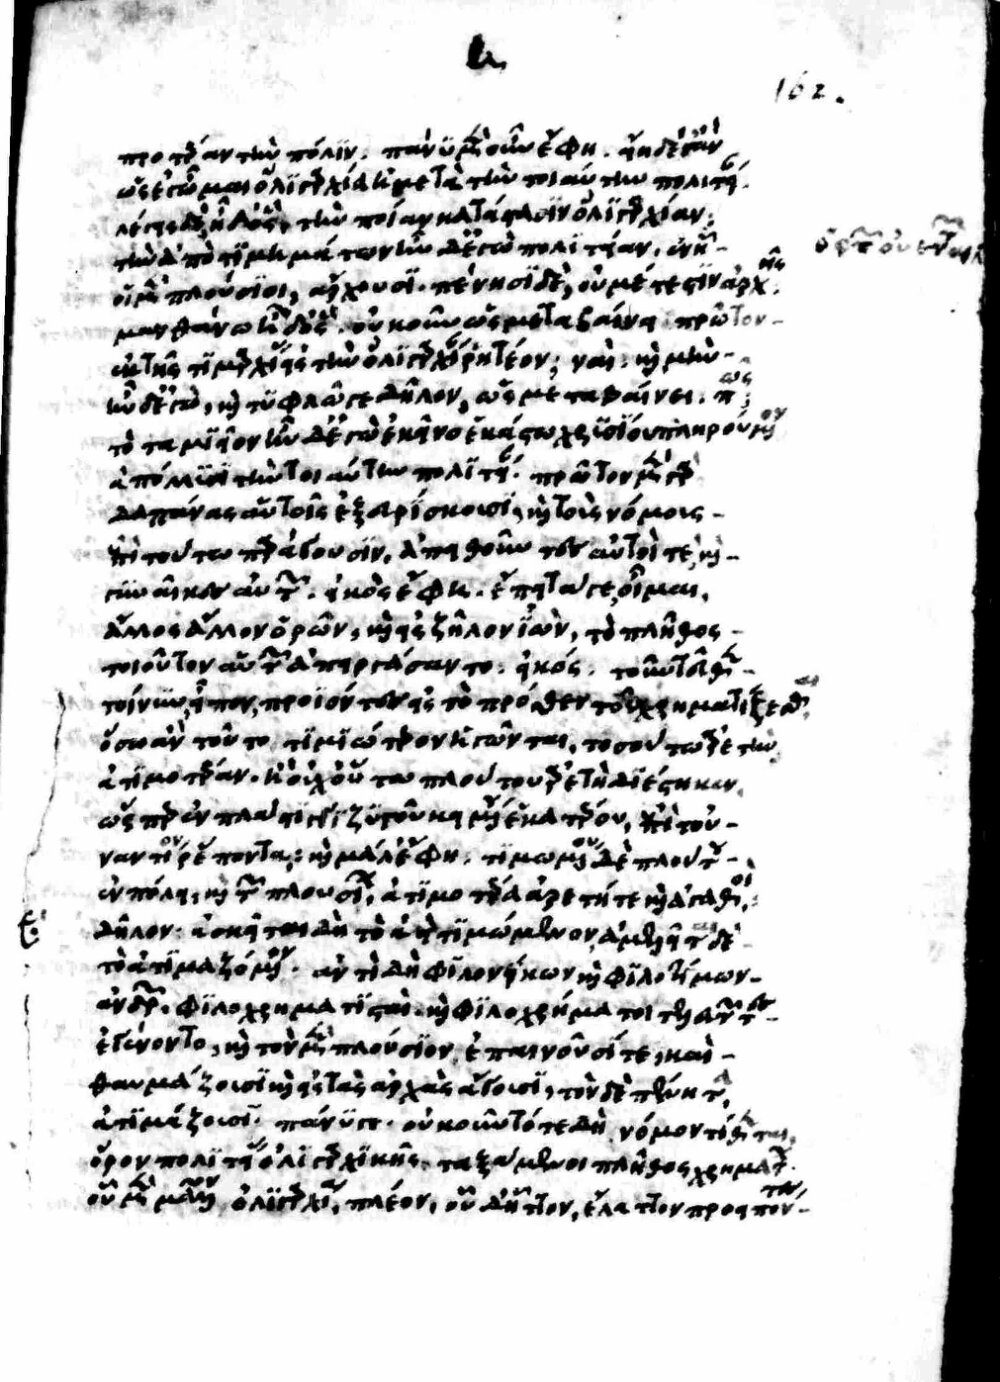 162.
προτέραν τὴν πόλιν. πάνυ μὲν οὖν ἔφη. εἴη δέ γ' ἂν
ὡς ἐγᾦμαι ὀλιγαρχία ἡ μετὰ τὴν τοιαύτην πολιτείαν.
λέγεις δὲ, ἦ δ' ὃς, τὴν ποίαν κατάστασιν ὀλιγαρχίαν;
τὴν ἀπὸ τιμημάτων ἦν δ' ἐγὼ πολιτείαν. ἐν ᾗ
οἱ μὲν πλούσιοι, ἄρχουσι. πένησι δὲ, οὐ μέτεστιν ἀρχῆς.
μανθάνω ἦ δ' ὅς. οὐκοῦν ὡς μεταβαίνει πρῶτον
ἐκ τῆς τιμαρχίας εἰς τὴν ὀλιγαρχίαν ῥητέον; ναί. καὶ μὴν
ἦν δ' ἐγὼ, καὶ τυφλῷ γε δῆλον, ὡς μεταβαίνει. πῶς;
τὸ ταμιεῖον ἦν δ' ἐγὼ ἐκεῖνο ἑκάστῳ χρυσίου πληρούμενον
ἀπόλλυσι τὴν τοιαύτην πολιτείαν. πρῶτον μὲν γὰρ
δαπάνας αὑτοῖς ἐξευρίσκουσι, καὶ τοὺς νόμους
ἐπὶ τοῦτο παράγουσιν, ἀπειθοῦντες αὐτοί τε, καὶ
γυναῖκες αὐτῶν. εἰκὸς ἔφη. ἔπειτά γε, οἶμαι,
ἄλλος ἄλλον ὁρῶν, καὶ εἰς ζῆλον ἰὼν, τὸ πλῆθος
τοιοῦτον αὑτῶν ἀπειργάσαντο. εἰκός. τοὐντεῦθεν
τοίνυν, εἶπον, προϊόντες εἰς τὸ πρόσθεν τοῦ χρηματίζεσθαι,
ὅσῳ ἂν τοῦτο τιμιώτερον ἡγῶνται, τοσούτῳ ἀρετὴν
ἀτιμοτέραν. ἢ οὐχ οὕτω πλούτου ἀρετὴ διέστηκεν,
ὥσπερ ἐν πλάστιγγι ζυγοῦ κειμένου ἑκατέρου, ἀεὶ τοὐ-
ναντίον ῥέποντε; καὶ μάλ' ἔφη. τιμωμένου δὲ πλούτου
ἐν πόλει, καὶ τῶν πλουσίων, ἀτιμοτέρα ἀρετή τε καὶ ἀγαθοί.
δῆλον. ἀσκεῖται δὴ τὸ ἀεὶ τιμώμενον, ἀμελεῖται δὲ
τὸ ἀτιμαζόμενον. ἀντὶ δὴ φιλονείκων καὶ φιλοτίμων
ἀνδρῶν, φιλοχρηματισταὶ καὶ φιλοχρήματοι τελευτῶντες
ἐγένοντο, καὶ τὸν μὲν πλούσιον, ἐπαινοῦσί τε, καὶ
θαυμάζουσι καὶ εἰς τὰς ἀρχὰς ἄγουσι, τὸν δὲ πένητα,
ἀτιμάζουσι. πάνυ γε. οὐκοῦν τότε δὴ νόμον τίθενται,
ὅρον πολιτείας ὀλιγαρχικῆς. ταξάμενοι πλῆθος χρημάτων.
οὗ μὲν μᾶλλον ὀλιγαρχία, πλέον, οὗ δ' ἧττον, ἔλαττον προειπόντες